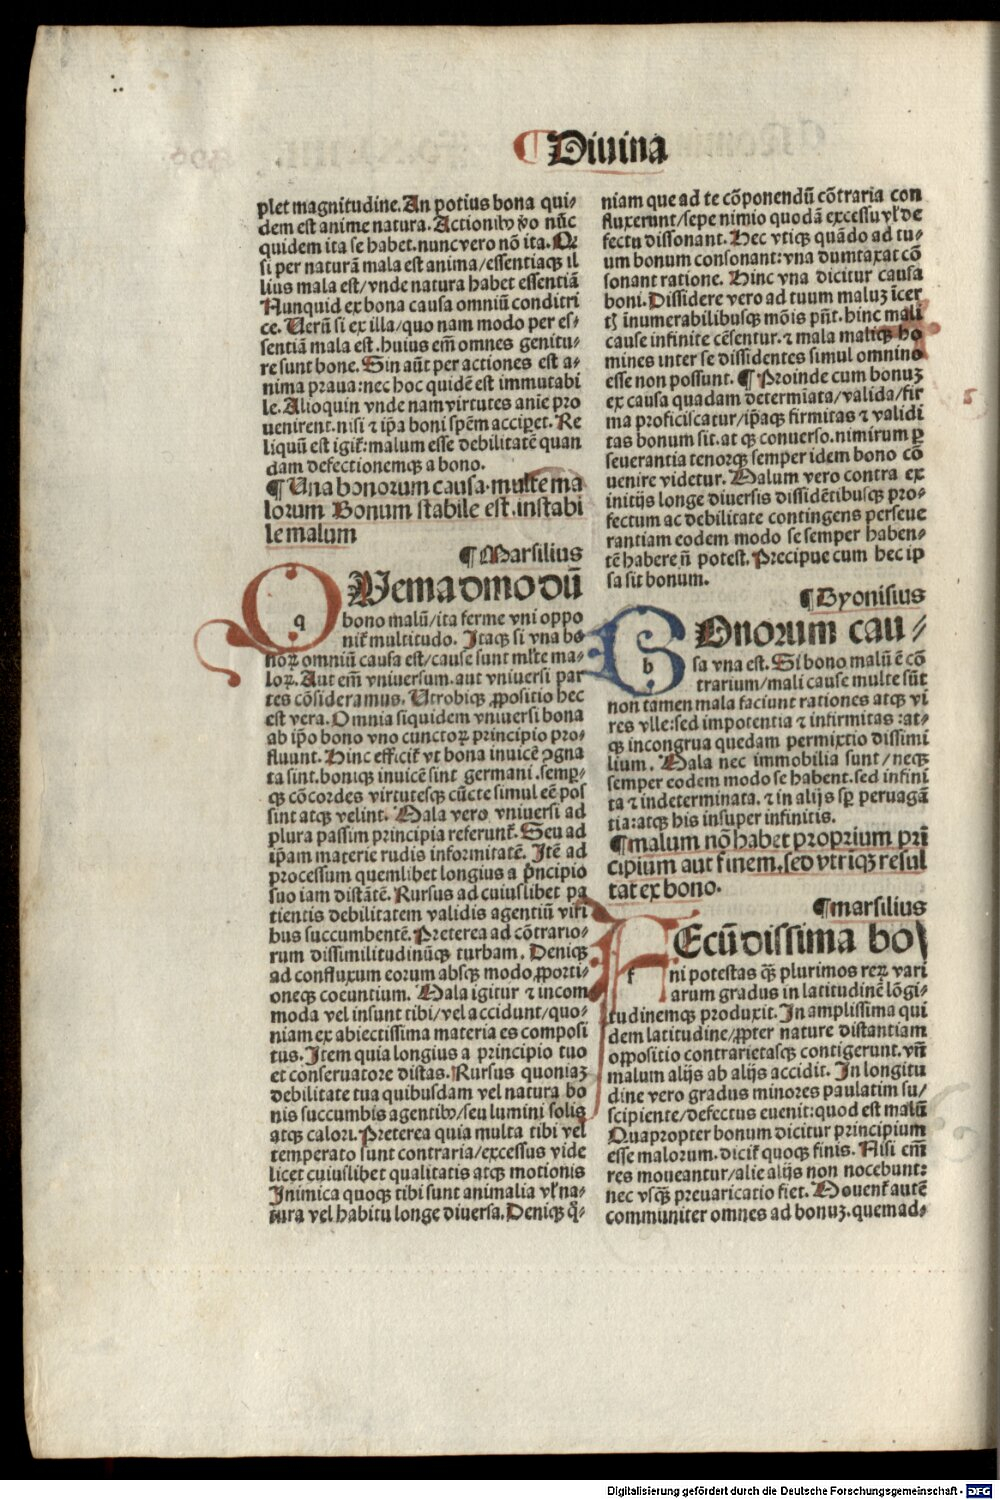 ¶Diuina
plet magnitudine. An potius bona qui-
dem est anime natura. Actionibꝰ ꝟo nūc
quidem ita se habet. nunc vero nō ita. Qꝛ
si per naturā mala est anima/essentiaqꝫ il
lius mala est/vnde natura habet essentiā
Nunquid ex bona causa omniū conditri
ce. Uerū si ex illa/quo nam modo per es-
sentiā mala est. huius em̄ omnes genitu-
re sunt bone. Sin aūt per actiones est a-
nima praua: nec hoc quidē est immutabi
le. Alioquin vnde nam virtutes anie pro
uenirent. nisi ⁊ ip̄a boni spēm accipꝫet. Re
liquū est igit̄: malum esse debilitatē quan
dam defectionemqꝫ a bono.
¶ Una bonorum causa. multe ma
lorum Bonum stabile est. instabi
le malum
¶ Marsilius
QUemadmodū
q
bono malū/ita ferme vni oppo
nit̄ multitudo. Itaqꝫ si vna bo
noꝝ omniū causa est/cause sunt ml̄te ma-
loꝝ. Aut em̄ vniversum. aut vniversi par
tes cōsideramus. Utrobiqꝫ ꝓpositio hec
est vera. Omnia siquidem vniuersi bona
ab ip̄o bono vno cunctoꝝ principio pro-
fluunt. Hinc efficit̄ vt bona inuicē ꝯgna
ta sint. boniqꝫ inuicē sint germani. semꝑ-
qꝫ cōcordes virtutesqꝫ cūcte simul eē pos
sint atqꝫ velint. Mala vero vniuersi ad
plura passim principia referunt̄. Seu ad
ip̄am materie rudis informitatē. Itē ad
processum quemlibet longius a p̄ncipio
suo iam distātē. Rursus ad cuiuslibet pa
tientis debilitatem validis agentiū viri
bus succumbentē. Preterea ad cōtrario-
rum dissimilitudinūqꝫ turbam. Deniqꝫ
ad confluxum eorum absqꝫ modo ꝓporti-
oneqꝫ coeuntium. Mala igitur ⁊ incom
moda vel insunt tibi/vel accidunt/quo-
niam ex abiectissima materia es composi
tus. Item quia longius a principio tuo
et conseruatore distas. Rursus quoniaꝫ
debilitate tua quibusdam vel natura bo
nis succumbis agentibꝰ/seu lumini solis
atqꝫ calori. Preterea quia multa tibi vel
temperato sunt contraria/excessus vide
licet cuiuslibet qualitatis atqꝫ motionis
Inimica quoqꝫ tibi sunt animalia vl̄ na-
tura vel habitu longe diuersa. Deniqꝫ q̊-
niam que ad te cōponendū cōtraria con
fluxerunt/sepe nimio quodā excessu vl̄ de
fectu dissonant. Hec vtiqꝫ quādo ad tu-
um bonum consonant: vna dumtaxat cō
sonant ratione. Hinc vna dicitur causa
boni. Dissidere vero ad tuum maluꝫ īcer
tꝫ īnumerabilibusqꝫ mōis pn̄t. hinc mali
cause infinite cēsentur. ⁊ mala maliqꝫ ho
mines inter se dissidentes simul omnino
esse non possunt. ¶ Proinde cum bonuꝫ
ex causa quadam determiata/valida/fir
ma proficiscatur/ip̄aqꝫ firmitas ⁊ validi
tas bonum sit. at qꝫ conuerso. nimirum ꝑ
seuerantia tenorqꝫ semper idem bono cō
uenire videtur. Malum vero contra ex
initijs longe diuersis dissidētibusqꝫ pro-
fectum ac debilitate contingens perseue
rantiam eodem modo se semper haben-
tē habere n̄ potest. Precipue cum hec ip
sa sit bonum.
¶ Dyonisius
BOnorum cau-
b
sa vna est. Si bono malū ē cō
trarium/mali cause multe sūt
non tamen mala faciunt rationes atqꝫ vi
res vlle: sed impotentia ⁊ infirmitas: at-
qꝫ incongrua quedam permixtio dissimi
lium. Mala nec immobilia sunt/neqꝫ
semper eodem modo se habent. sed infini
ta ⁊ indeterminata. ⁊ in alijs sꝑ peruagā
tia: atqꝫ his insuper infinitis.
¶ malum nō habet proprium pri
cipium aut finem. sed vtriqꝫ resul
tat ex bono.
¶ marsilius
FEcūdissima bo
f
ni potestas q̄ꝫ plurimos reꝝ vari
arum gradus in latitudinē lōgi-
tudinemqꝫ produxit. In amplissima qui
dem latitudine/ꝓpter nature distantiam
oppositio contrarietasqꝫ contigerunt. vn̄
malum alijs ab alijs accidit. In longitu
dine vero gradus minores paulatim su/
scipiente/defectus euenit: quod est malū
Quapropter bonum dicitur principium
esse malorum. dicit̄ quoqꝫ finis. Nisi em̄
res moueantur/alie alijs non nocebunt:
nec vsqꝫ preuaricatio fiet. Mouent̄ autē
communiter omnes ad bonuꝫ. quemad-
Digitalisierung gefördert durch die Deutsche Forschungsgemeinschaft - DFG